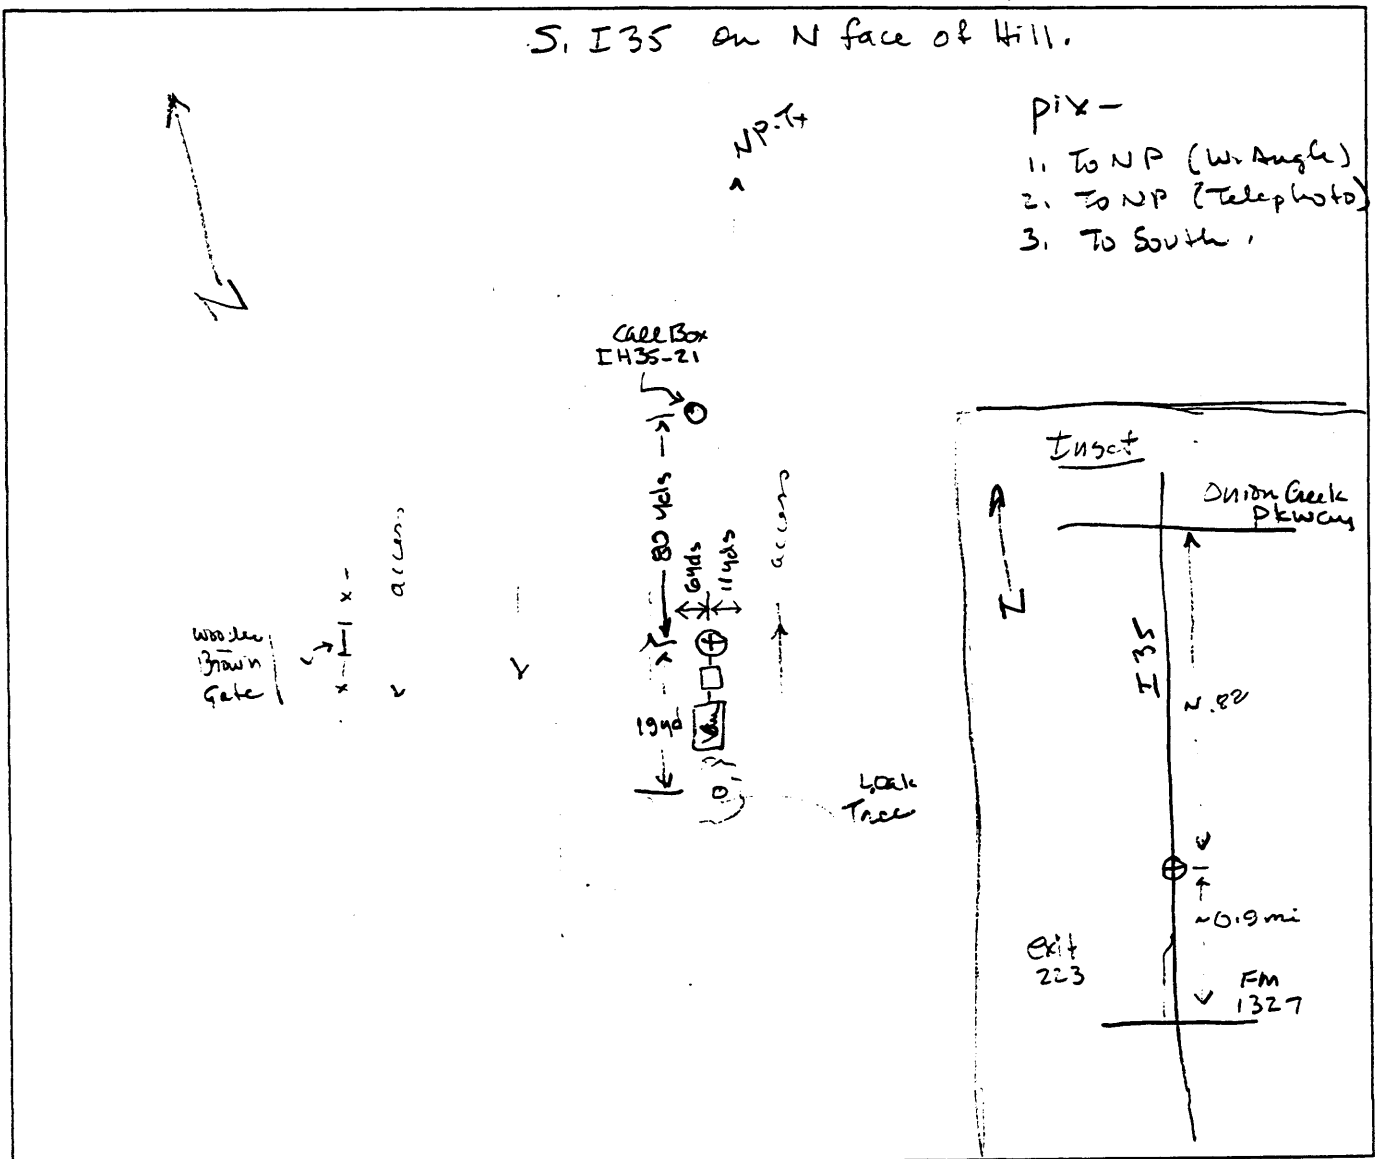 S. I35 on N face of Hill.
pix-
1. To NP (W. Angle)
2. To NP (Telephoto)
3. To South.
NP-Tx
N
Call Box
IH35-21
80 yds
6yds
11yds
access
access
Wooden
Brown
Gate
19yd
Van
L. Oak
Tree
Inset
N
Onion Creek
Pkway
I 35
~0.9mi
exit
223
FM
1327